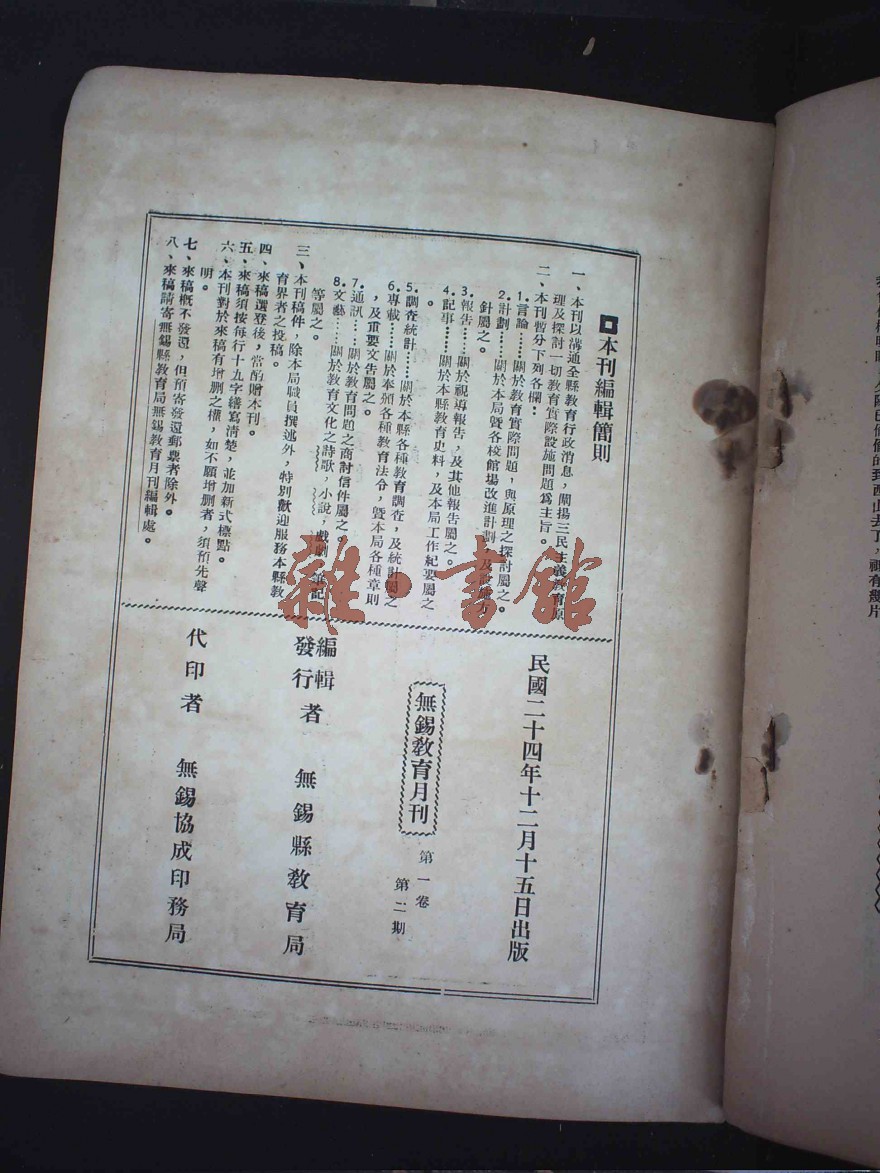 本刊編輯簡則
一、本刊以溝通全縣教育行政消息，闡揚三民主義教育原
理及探討一切教育實際設施問題爲主旨。
二、本刊暫分下列各欄：
1.言論……關於教育實際問題，與原理之探討屬之。
2.計劃……關於本局暨各校館場改進計劃，及設施方
針屬之。
3.報告……關於視導報告，及其他報告屬之。
4.記事……關於本縣教育史料，及本局工作紀要屬之
。
5.調查統計……關於本縣各種教育調查，及統計屬之
6.專載……關於奉頒各種教育法令，暨本局各種章則
，及重要文告屬之。
7.通訊……關於教育問題之商討信件屬之。
8.文藝……關於教育文化之詩歌，小說，戲劇，筆記
等屬之。
三、本刊稿件，除本局職員撰述外，特別歡迎服務本縣教
育界者之投稿。
四、來稿選登後，當酌贈本刊。
五、來稿須按每行十九字繕寫清楚，並加新式標點。
六、本刊對於來稿有增删之權，如不願增删者，須預先聲
明。
七、來稿概不發還，但預寄發還郵票者除外。
八、來稿請寄無錫縣教育局無錫教育月刊編輯處。
民國二十四年十二月十五日出版
無錫教育月刊
第一卷
第二期
編輯
發行
者
無錫縣教育局
代印者
無錫協成印務局
雜·書館